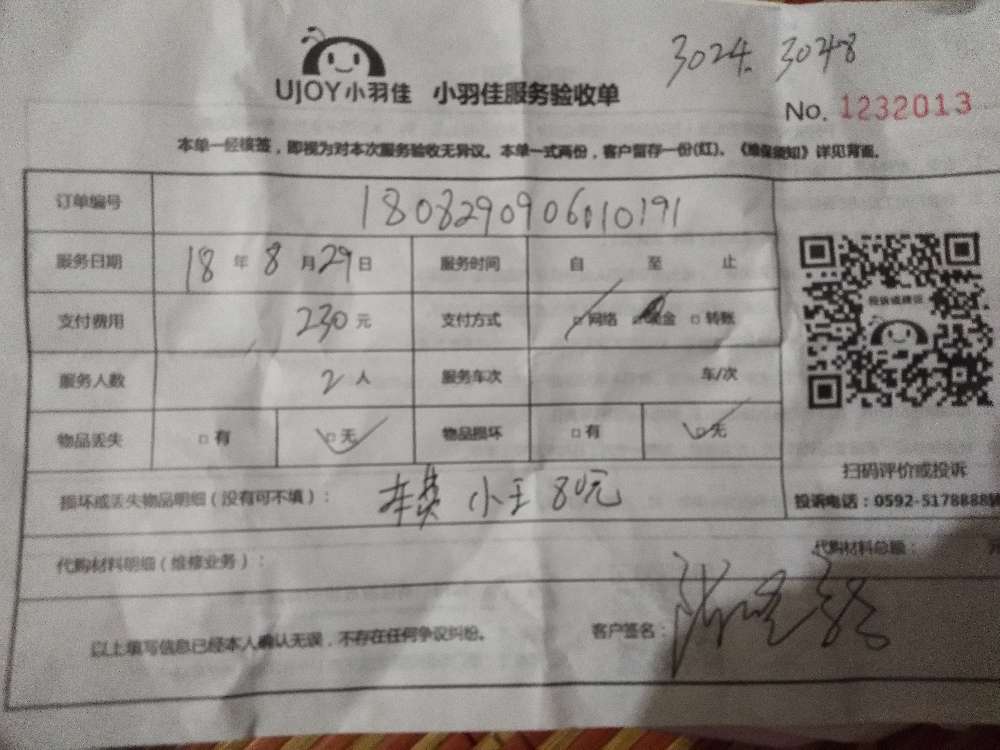 3024. 3048
UJOY小羽佳 小羽佳服务验收单
No. 1232013
本单一经核签，即视为对本次服务验收无异议。本单一式两份，客户留存一份(红)。《维保须知》详见背面。
订单编号 180829090610191
服务日期 18 年 8 月 29 日 服务时间 自 至 止
支付费用 230 元 支付方式 □网络 □现金 □转账
服务人数 2 人 服务车次 车/次
物品丢失 □有 □无 物品损坏 □有 □无
投诉或建议
扫码评价或投诉
投诉电话：0592-5178888
损坏或丢失物品明细（没有可不填）： 车费 小王 80元
代购材料明细（维修业务）： 代购材料总额：
以上填写信息已经本人确认无误，不存在任何争议纠纷。 客户签名：